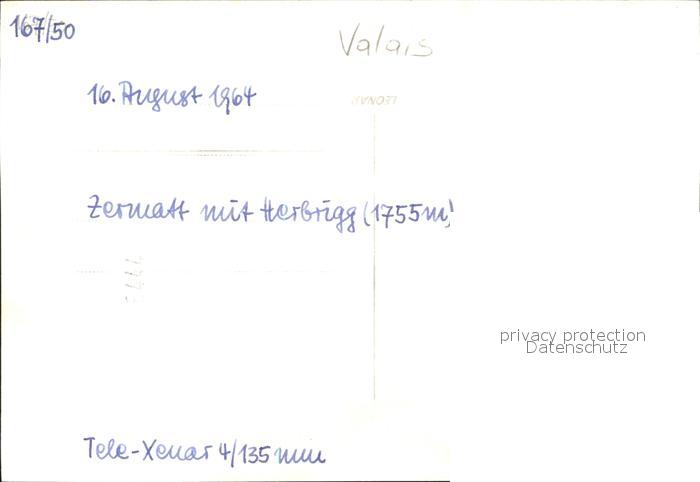 167/50
Valais
16. August 1964
LEONAR
Zermatt mit Herbrigg (1755m)
privacy protection
Datenschutz
Tele-Xenar 4/135 mm